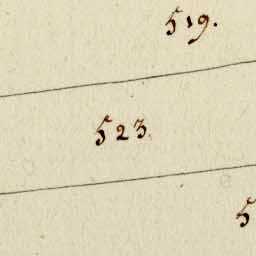 519.
523.
5